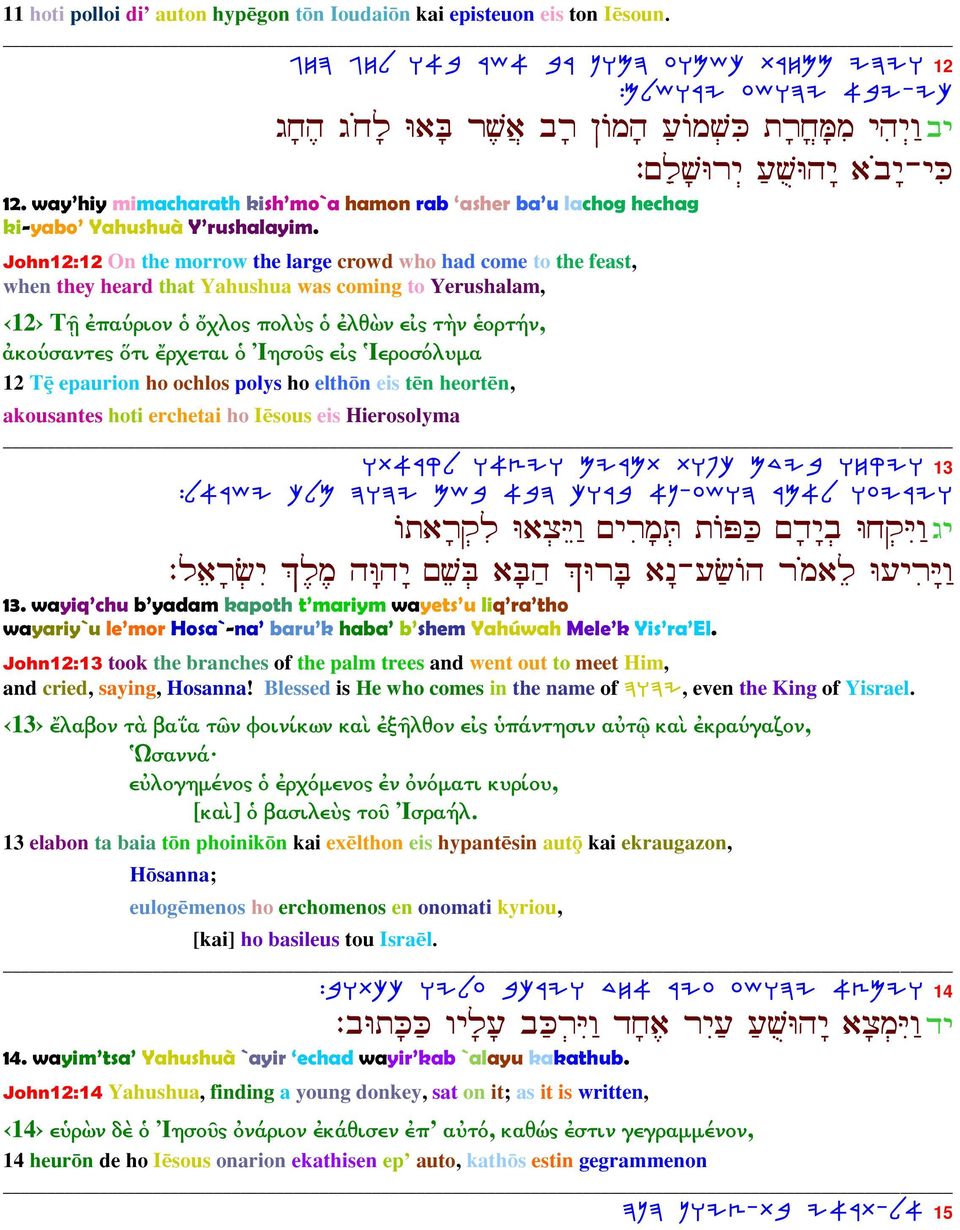 11 hoti polloi di’ auton hypēgon tōn Ioudaiōn kai episteuon eis ton Iēsoun.
12 𐤅𐤉𐤄𐤉 𐤌𐤌𐤇𐤓𐤕 𐤊𐤔𐤌𐤅𐤏 𐤄𐤌𐤅𐤍 𐤓𐤁 𐤀𐤔𐤓 𐤁𐤀𐤅 𐤋𐤇𐤂 𐤄𐤇𐤂
𐤊𐤉-𐤉𐤁𐤀 𐤉𐤄𐤅𐤔𐤏 𐤉𐤓𐤅𐤔𐤋𐤌:
יב וַיְהִי מִמָּחֳרָת כִּשְׁמוֹעַ הָמוֹן רָב אֲשֶׁר בָּאוּ לָחֹג הֶחָג
כִּי־יָבֹא יָהוּשֻׁעַ יְרוּשָׁלָיִם:
12. way’hiy mimacharath kish’mo`a hamon rab ‘asher ba’u lachog hechag
ki-yabo’ Yahushuà Y’rushalayim.
John12:12 On the morrow the large crowd who had come to the feast,
when they heard that Yahushua was coming to Yerushalam,
‹12› Τῇ ἐπαύριον ὁ ὄχλος πολὺς ὁ ἐλθὼν εἰς τὴν ἑορτήν,
ἀκούσαντες ὅτι ἔρχεται ὁ Ἰησοῦς εἰς Ἱεροσόλυμα
12 Tȩ̄ epaurion ho ochlos polys ho elthōn eis tēn heortēn,
akousantes hoti erchetai ho Iēsous eis Hierosolyma
13 𐤅𐤉𐤒𐤇𐤅 𐤁𐤉𐤃𐤌 𐤊𐤐𐤅𐤕 𐤕𐤌𐤓𐤉𐤌 𐤅𐤉𐤑𐤀𐤅 𐤋𐤒𐤓𐤀𐤕𐤅
𐤅𐤉𐤓𐤉𐤏𐤅 𐤋𐤀𐤌𐤓 𐤄𐤅𐤔𐤏-𐤍𐤀 𐤁𐤓𐤅𐤊 𐤄𐤁𐤀 𐤁𐤔𐤌 𐤉𐤄𐤅𐤄 𐤌𐤋𐤊 𐤉𐤔𐤓𐤀𐤋:
יג וַיִּקְחוּ בְיָדָם כַּפּוֹת תְּמָרִים וַיֵּצְאוּ לִקְרָאתוֹ
וַיָּרִיעוּ לֵאמֹר הוֹשַׂע־נָא בָּרוּךְ הַבָּא בְּשֵׁם יָהוָּה מֶלֶךְ יִשְׂרָאֵל:
13. wayiq’chu b’yadam kapoth t’mariym wayets’u liq’ra’tho
wayariy`u le’mor Hosa`-na’ baru’k haba’ b’shem Yahúwah Mele’k Yis’ra’El.
John12:13 took the branches of the palm trees and went out to meet Him,
and cried, saying, Hosanna! Blessed is He who comes in the name of 𐤉𐤄𐤅𐤄, even the King of Yisrael.
‹13› ἔλαβον τὰ βαΐα τῶν φοινίκων καὶ ἐξῆλθον εἰς ὑπάντησιν αὐτῷ καὶ ἐκραύγαζον,
Ὡσαννά·
εὐλογημένος ὁ ἐρχόμενος ἐν ὀνόματι κυρίου,
[καὶ] ὁ βασιλεὺς τοῦ Ἰσραήλ.
13 elabon ta baia tōn phoinikōn kai exēlthon eis hypantēsin autǭ kai ekraugazon,
Hōsanna;
eulogēmenos ho erchomenos en onomati kyriou,
[kai] ho basileus tou Israēl.
14 𐤅𐤉𐤌𐤑𐤀 𐤉𐤄𐤅𐤔𐤏 𐤏𐤉𐤓 𐤀𐤇𐤃 𐤅𐤉𐤓𐤊𐤁 𐤏𐤋𐤉𐤅 𐤊𐤊𐤕𐤅𐤁:
יד וַיִּמְצָא יָהוּשֻׁעַ עַיִר אֶחָד וַיִּרְכַּב עָלָיו כַּכָּתוּב:
14. wayim’tsa’ Yahushuà `ayir ‘echad wayir’kab `alayu kakathub.
John12:14 Yahushua, finding a young donkey, sat on it; as it is written,
‹14› εὑρὼν δὲ ὁ Ἰησοῦς ὀνάριον ἐκάθισεν ἐπ’ αὐτό, καθώς ἐστιν γεγραμμένον,
14 heurōn de ho Iēsous onarion ekathisen ep’ auto, kathōs estin gegrammenon
15 𐤀𐤋-𐤕𐤓𐤀𐤉 𐤁𐤕-𐤑𐤉𐤅𐤍 𐤄𐤍𐤄